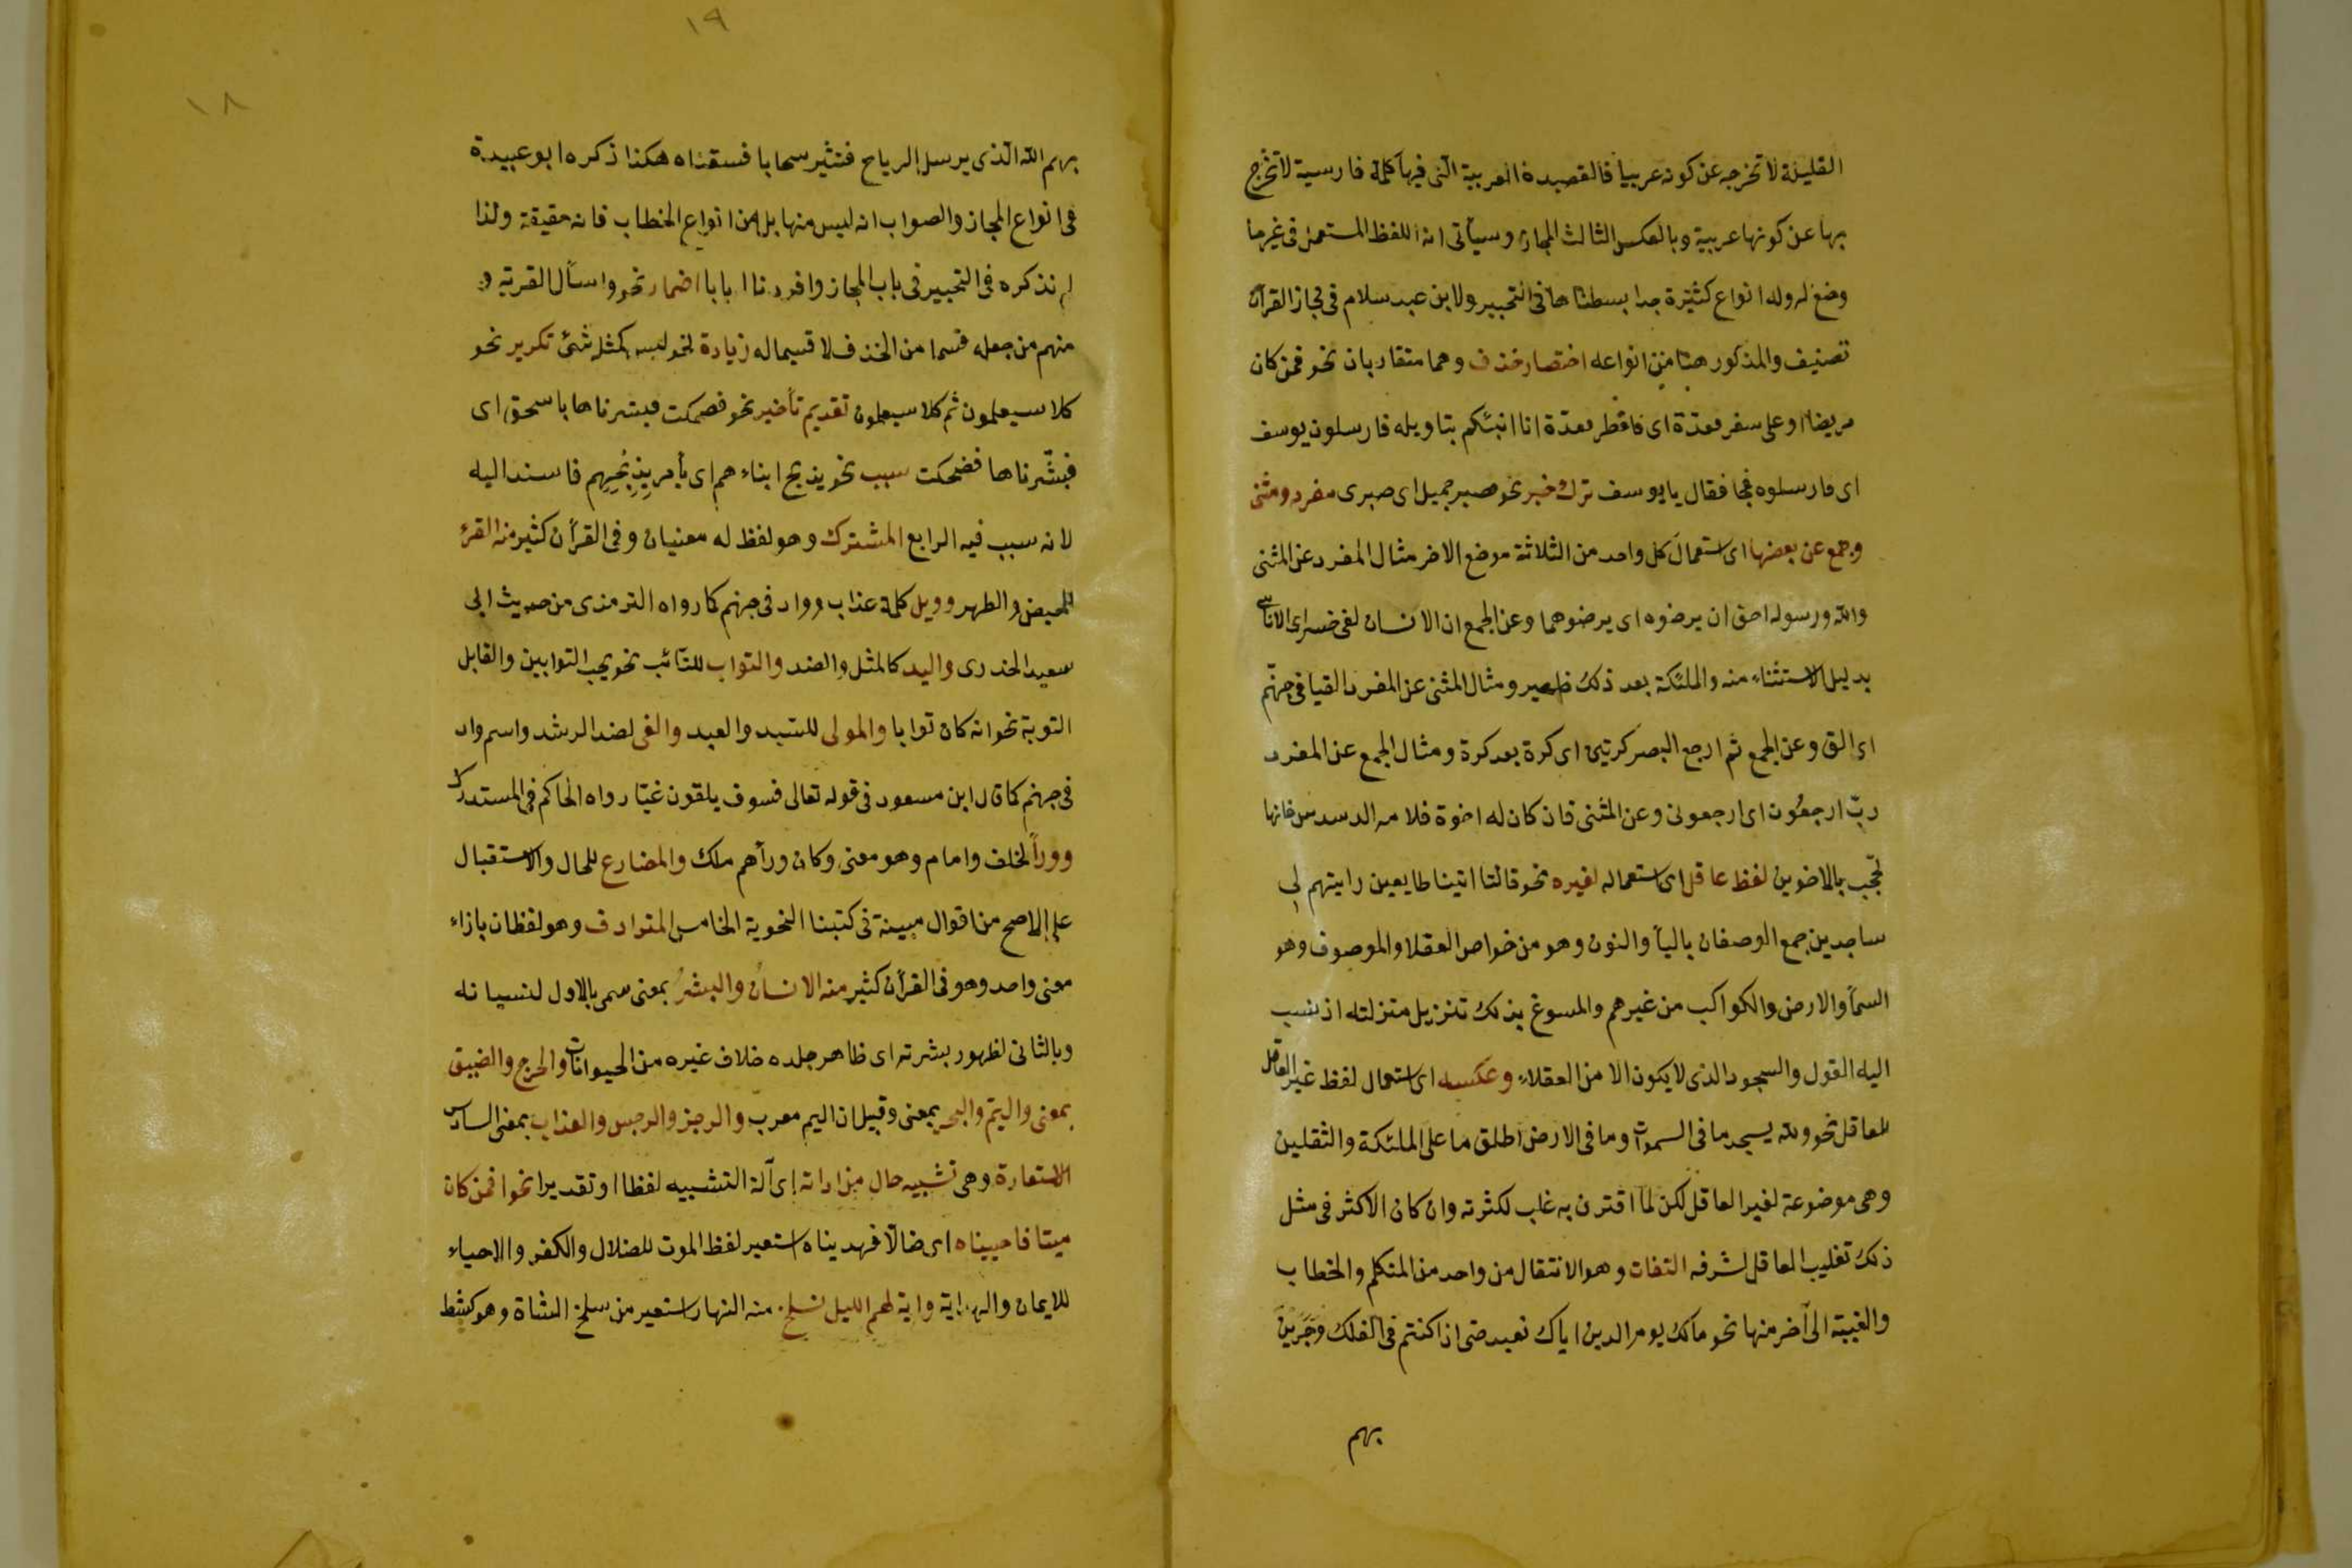 القليلة لا تخرجه عن كونه عربيا فالقصيدة العربية التى فيها كلمة فارسية لا تخرج
بها عن كونها عربية وبالعكس الثالث المجاز وسيأتى انه اللفظ المستعمل فى غير ما
وضع له وله انواع كثيرة جدا بسطناها فى التحبير ولابن عبد سلام فى مجاز القرآن
تصنيف والمذكور هنا من انواعه اختصار حذف وهما متقاربان نحو فمن كان
مريضا او على سفر فعدة اى فافطر فعدة انا انبئكم بتاويله فارسلون يوسف
اى فارسلوه فجا فقال يا يوسف ترك خبر نحو فصبر جميل اى صبرى مفرد ومثنى
وجمع عن بعضها اى استعمال كل واحد من الثلاثة موضع الاخر مثال المفرد عن المثنى
والله ورسوله احق ان يرضوه اى يرضوهما وعن الجمع ان الانسان لفى خسر اى الاناسى
بدليل الاستثناء منه والملئكة بعد ذلك ظهير ومثال المثنى عن المفرد القيا فى جهنّم
اى الق وعن الجمع ثم ارجع البصر كرتين اى كرة بعد كرة ومثال الجمع عن المفرد
ربّ ارجعُون اى ارجعونى وعن المثنى فان كان له اخوة فلامه السدس فانها
تحّجب بالاخوين لفظ عاقل اى استعماله لغيره نحو قالتا اتينا طايعين رايتهم لى
ساجدين جمع الوصفان باليأ والنون وهو من خواص العقلا والموصوف وهو
السمآ والارض والكواكب من غيرهم والمسوغ بذلك تنزيل منزلته اذ نسب
اليه القول والسجود الذى لا يكون الا من العقلاء وعكسه اى استعمال لفظ غير العاقل
للعاقل نحو ولله يسجد ما فى السموات وما فى الارض اطلق ما على الملئكة والثقلين
وهى موضوعة لغير العاقل لكن لمّا اقترن به غلب لكثرته وان كان الاكثر فى مثل
ذلك تغليب العاقل لشرفه التفات وهو الانتقال من واحد من المتكلم والخطاب
والغيبة الى آخر منها نحو مالك يوم الدين اياك نعبد حتى اذا كنتم فى الفلك وَجَرَيْنَ
بهم
١٩
١٨
بهم الله الّذى يرسل الرياح فتثير سحابا فسقناه هكذا ذكره ابو عبيدة
فى انواع المجاز والصواب انه ليس منها بل من انواع الخطاب فانه حقيقة ولذا
لم نذكره فى التحبير فى باب المجاز وافردنا ا بابا اضمار نحو واسأل القرية و
منهم من جعله قسما من الحذف لا قسيما له زيادة نحو ليس كمثله شئ تكرير نحو
كلا سيعلمون ثم كلا سيعلمون تقديم تأخير نحو فضحكت فبشرناها باسحق اى
فبشّرناها فضحكت سبب نحو يذبح ابناءهم اى يأمر بِذِبْحِهِم فاسند اليه
لانه سبب فيه الرابع المشترك وهو لفظ له معنيان وفى القرآن كثير منه القرئ
للحيض والطهر وويل كلمة عذاب وواد فى جهنم كما رواه الترمذى من حديث ابى
سعيد الخدرى واليد كالمثل والضد والتواب للتّائب نحو يحب التوابين والقابل
التوبة نحو انه كان توابا والمولى للسّيد والعبد والغى لضد الرشد واسم واد
فى جهنم كما قال ابن مسعود فى قوله تعالى فسوف يلقون غيّا رواه الحاكم فى المستدرك
وورآ لخلف وامام وهو معنى وكان ورأهم ملك والمضارع للحال والاستقبال
على الاصح من اقوال مبينة فى كتبنا النحوية الخامس المترادف وهو لفظان بازاء
معنى واحد وهو فى القرآن كثير منه الانسانُ والبشرُ بمعنى سمى بالاول لنسيانه
وبالثانى لظهور بشرته اى ظاهر جلده خلاف غيره من الحيوانات والحرج والضيق
بمعنى واليَمّ والبحر بمعنى وقيل ان اليم معرب والرجز والرجس والعذاب بمعنى السادس
الاستعارة وهى تشبيه خالٍ من اداته اى آلة التشبيه لفظا او تقديرا نحو افمن كان
ميتا فاحييناه اى ضالّا فهديناه استعير لفظ الموت للضلال والكفر والاحياء
للايمان والهداية واية لهم الليل نسلخ منه النهار استعير من سلخ الشاة وهو كشط